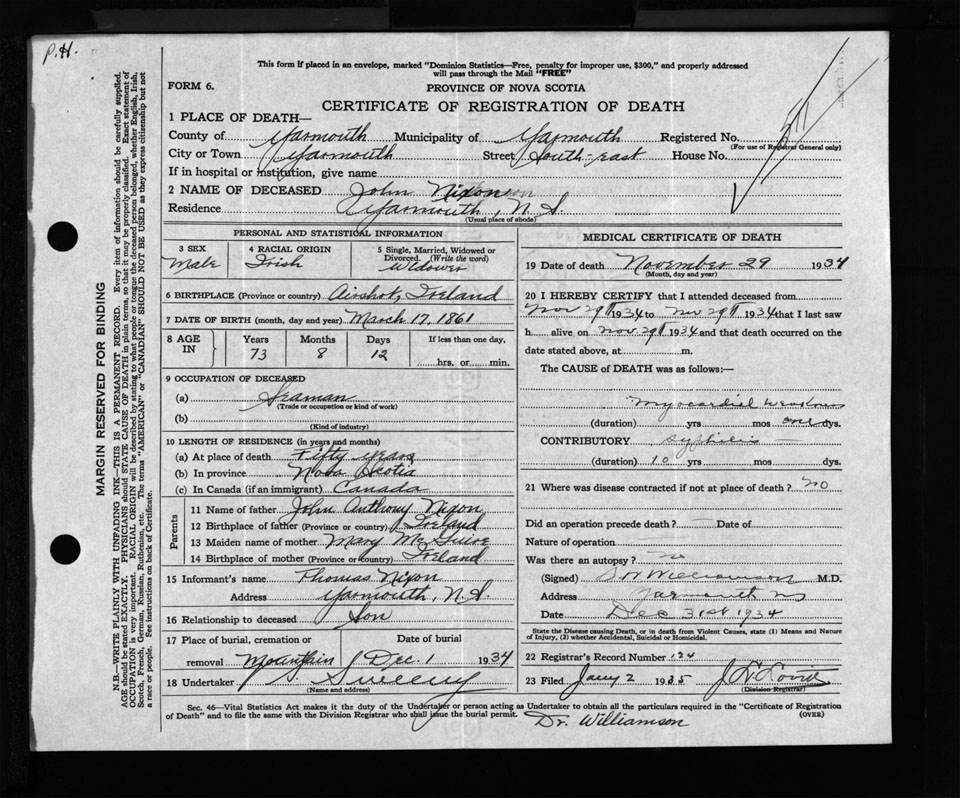 P.H.
This form if placed in an envelope, marked "Dominion Statistics—Free, penalty for improper use, $300," and properly addressed
will pass through the Mail "FREE"
FORM 6.
PROVINCE OF NOVA SCOTIA
CERTIFICATE OF REGISTRATION OF DEATH
1 PLACE OF DEATH—
County of Yarmouth Municipality of Yarmouth Registered No.
(For use of Registrar General only)
City or Town Yarmouth Street South-east House No.
If in hospital or institution, give name
2 NAME OF DECEASED John Nixon
Residence Yarmouth, N.S.
(Usual place of abode)
PERSONAL AND STATISTICAL INFORMATION
3 SEX Male
4 RACIAL ORIGIN Irish
5 Single, Married, Widowed or Divorced. (Write the word) Widower
6 BIRTHPLACE (Province or country) Ireland
7 DATE OF BIRTH (month, day and year) March 17, 1861
8 AGE IN Years 73 Months 8 Days 12 If less than one day, hrs. or min.
9 OCCUPATION OF DECEASED
(a) Seaman
(Trade or occupation or kind of work)
(b)
(Kind of industry)
10 LENGTH OF RESIDENCE (in years and months)
(a) At place of death Fifty years
(b) In province Nova Scotia
(c) In Canada (if an immigrant) Canada
Parents
11 Name of father John Anthony Nixon
12 Birthplace of father (Province or country) Ireland
13 Maiden name of mother Mary McGuire
14 Birthplace of mother (Province or country) Ireland
15 Informant's name Thomas Nixon
Address Yarmouth, N.S.
16 Relationship to deceased Son
17 Place of burial, cremation or Date of burial
removal Mountain Dec. 1 1934
18 Undertaker Sweeny
(Name and address)
MEDICAL CERTIFICATE OF DEATH
19 Date of death November 29 1934
(Month, day and year)
20 I HEREBY CERTIFY that I attended deceased from
Nov 29 1934 to Nov 29 1934 that I last saw
h alive on Nov 29 1934 and that death occurred on
date stated above, at m.
The CAUSE of DEATH was as follows:—
Myocardial weakness
(duration) yrs mos one dys.
CONTRIBUTORY syphilis
(duration) 10 yrs mos dys.
21 Where was disease contracted if not at place of death? no
Did an operation precede death? Date of
Nature of operation
Was there an autopsy? no
(Signed) Williamson M.D.
Address Yarmouth NS
Date Dec 31st 1934
State the Disease causing Death, or in death from Violent Causes, state (1) Means and Nature
of Injury, (2) whether Accidental, Suicidal or Homicidal.
22 Registrar's Record Number 124
23 Filed Jany 2 1935
(Division Registrar)
Sec. 46—Vital Statistics Act makes it the duty of the Undertaker or person acting as Undertaker to obtain all the particulars required in the "Certificate of Registration
of Death" and to file the same with the Division Registrar who shall issue the burial permit.
(OVER)
Dr. Williamson
MARGIN RESERVED FOR BINDING
N.B.—WRITE PLAINLY WITH UNFADING INK—THIS IS A PERMANENT RECORD. Every item of information should be carefully supplied.
AGE should be stated EXACTLY. PHYSICIANS should STATE CAUSE OF DEATH in plain terms, so that it may be properly classified. Exact statement of
OCCUPATION is very important. RACIAL ORIGIN will be described by stating to what people or tongue the deceased person belonged, whether English, Irish,
Scotch, French, German, Russian, Ruthenian, etc. The terms "AMERICAN" or "CANADIAN" SHOULD NOT BE USED as they express citizenship but not
a race or people. See instructions on back of Certificate.